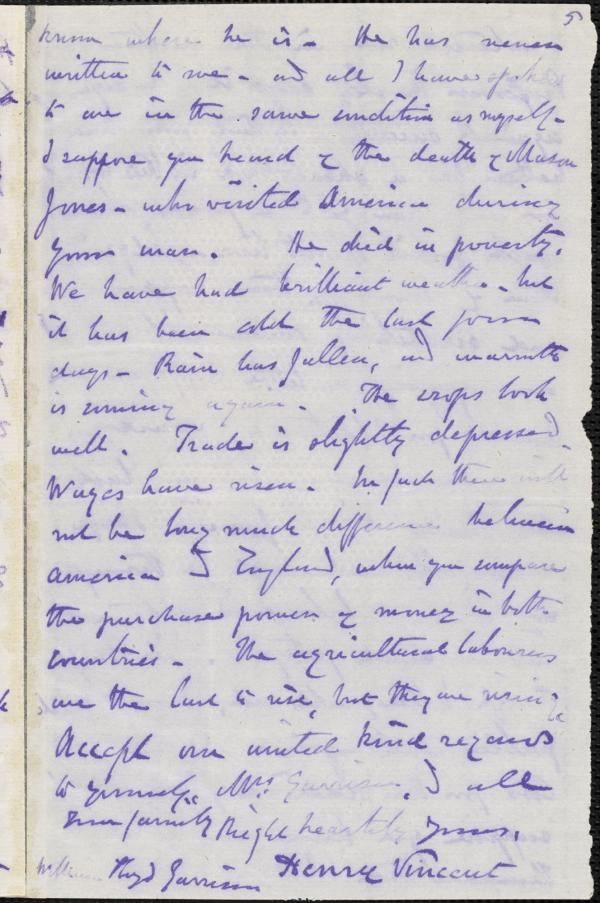 5
know where he is - He has never
written to me - and all I have spoken
to are in the same condition as myself -
I suppose you heard of the death of Mason
Jones - who visited America during
your war. He died in poverty.
We have had brilliant weather - but
it has been cold the last four
days - Rain has fallen, and warmth
is coming again. The crops look
well. Trade is slightly depressed.
Wages have risen. In fact there will
not be long much difference between
America & England, when you compare
the purchase power of money in both
countries - The agricultural labourers
are the last to rise, but they are rising
Accept our united kind regards
to yourself, Mrs Garrison, & all
your family Right heartily yours,
Henry Vincent
William Lloyd Garrison